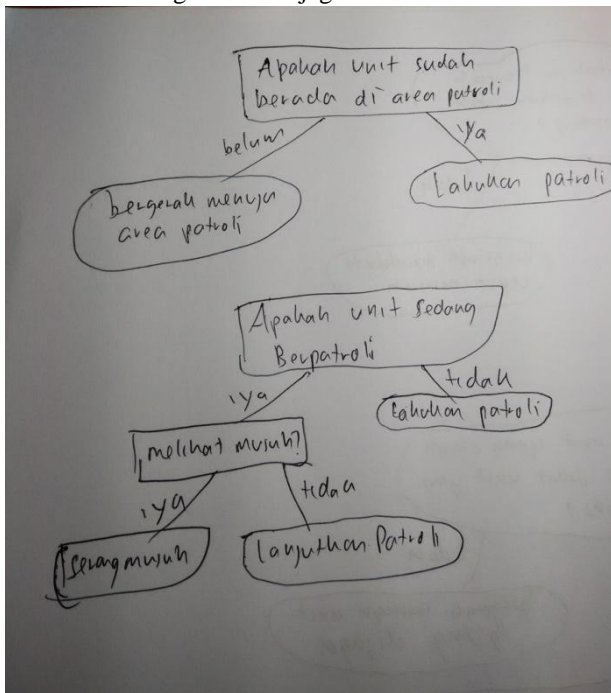 Apakah unit sudah
berada di area patroli
belum
iya
bergerak menuju
area patroli
Lakukan patroli
Apakah unit sedang
Berpatroli
iya
tidak
Lakukan patroli
melihat musuh?
iya
tidak
serang musuh
Lanjutkan Patroli